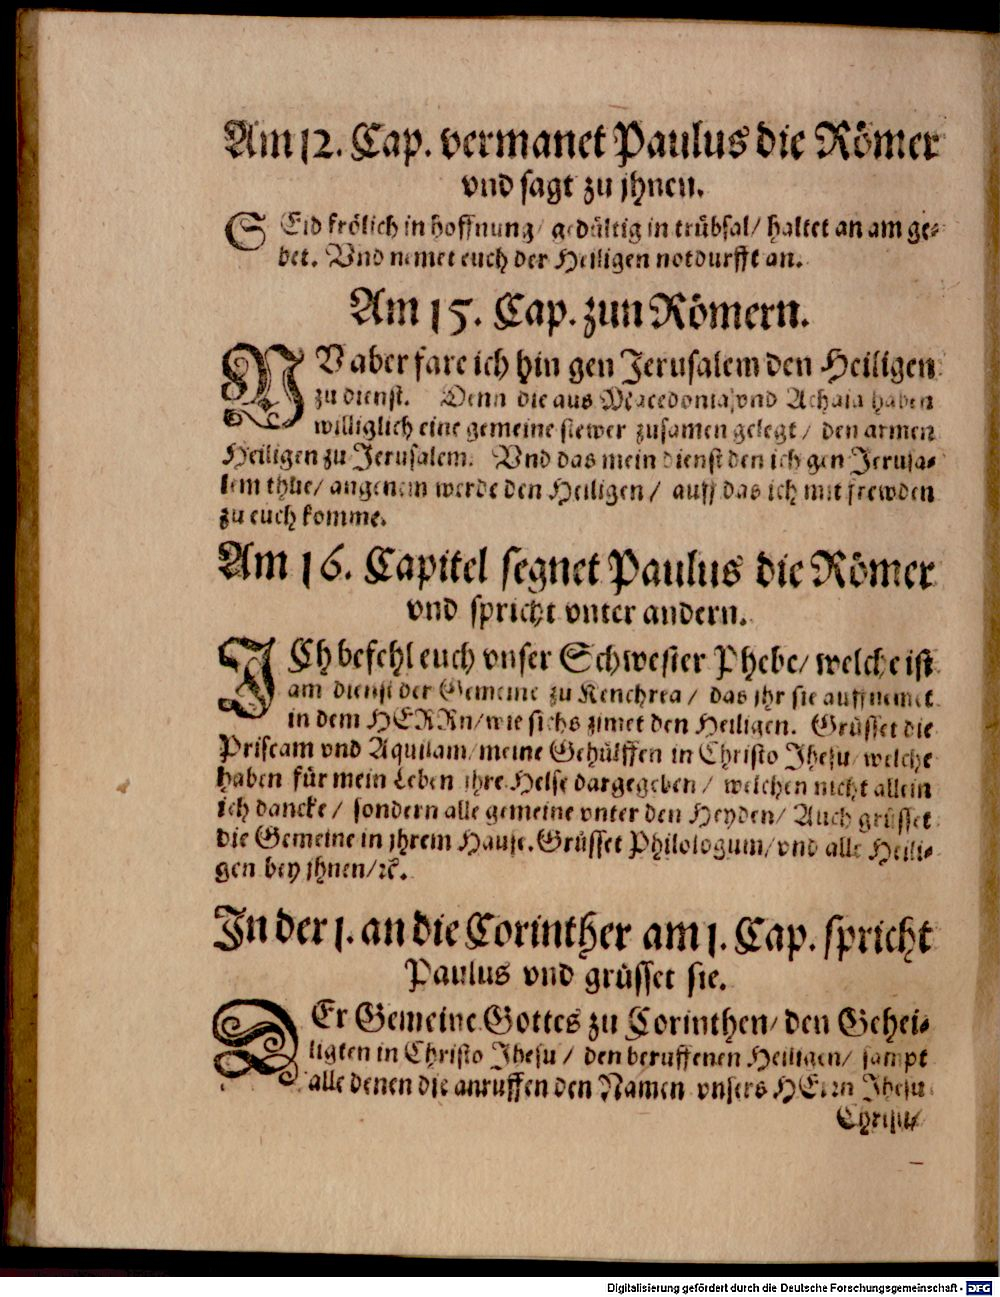 Am 12. Cap. vermanet Paulus die Römer
vnd sagt zu jhnen.
SEid frölich in hoffnung/ gedültig in trübsal/ haltet an am ge-
bet. Vnd nemet euch der Heiligen notdurfft an.
Am 15. Cap. zun Römern.
NV aber fare ich hin gen Jerusalem den Heiligen
zu dienst. Denn die aus Macedonia vnd Achaia haben
williglich eine gemeine stewer zusamen gelegt/ den armen
Heiligen zu Jerusalem. Vnd das mein dienst den ich gen Jerusa-
lem thue/ angenem werde den Heiligen/ auff das ich mit frewden
zu euch komme.
Am 16. Capitel segnet Paulus die Römer
vnd spricht vnter andern.
ICh befehl euch vnser Schwester Phebe/ welche ist
am dienst der Gemeine zu Kenchrea/ das jhr sie auffnemet
in dem HERRn/ wie sichs zimet den Heiligen. Grüsset die
Priscam vnd Aquilam/ meine Gehülffen in Christo Jhesu/ welche
haben für mein Leben jhre Helse dargegeben/ welchen nicht allein
ich dancke/ sondern alle gemeine vnter den Heyden/ Auch grüsset
die Gemeine in jhrem Hause. Grüsset Philologum/ vnd alle Heili-
gen bey jhnen/ ꝛc.
In der 1. an die Corinther am 1. Cap. spricht
Paulus vnd grüsset sie.
DEr Gemeine Gottes zu Corinthen/ den Gehei-
ligten in Christo Jhesu/ den beruffenen Heiligen/ sampt
alle denen die anruffen den Namen vnsers HErrn Jhesu
Christi/
Digitalisierung gefördert durch die Deutsche Forschungsgemeinschaft - DFG